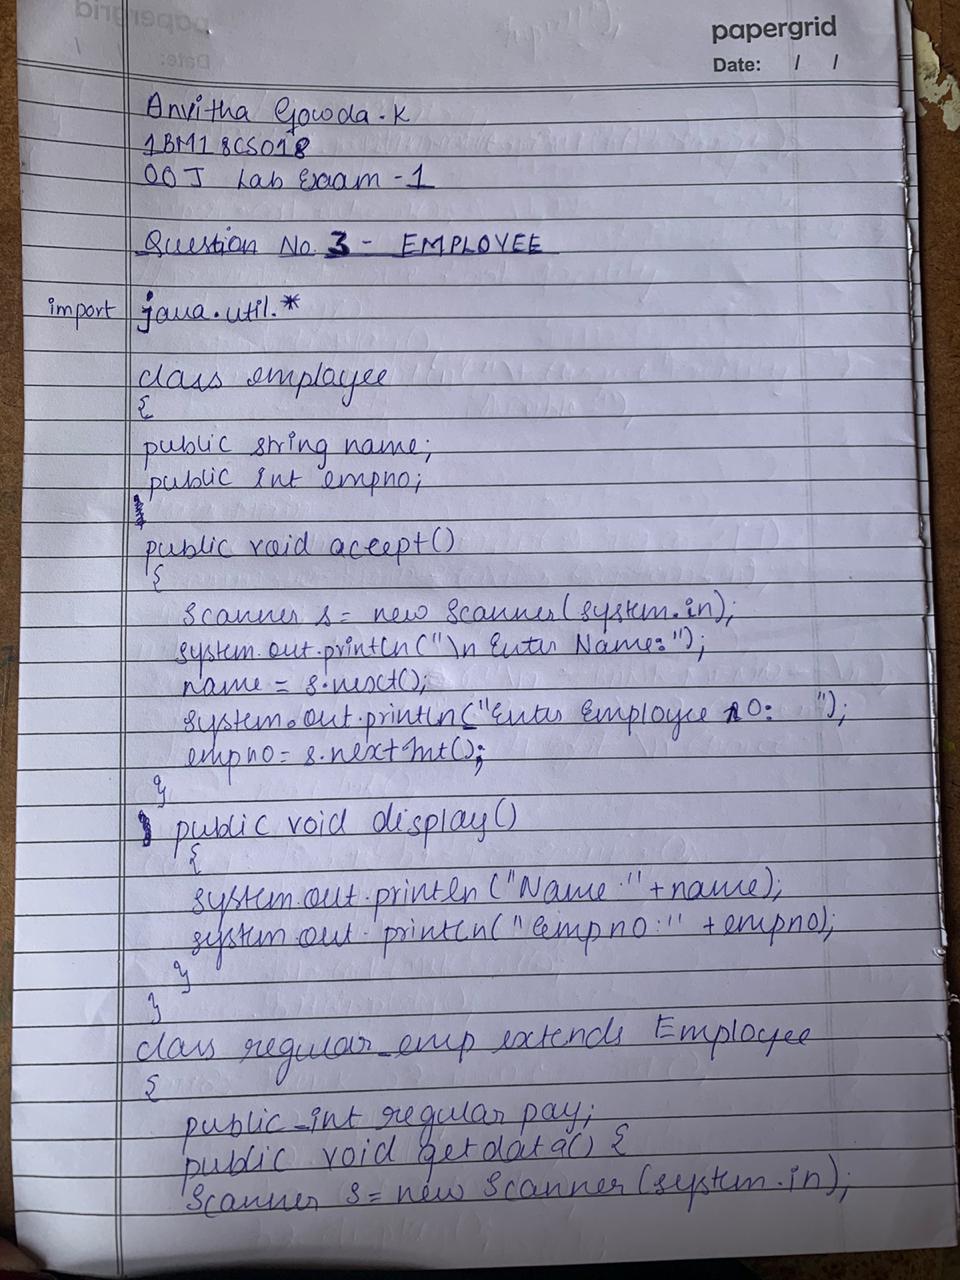 papergrid
Date: / /
Anvitha Gowda.K
1BM18CS018
OOJ Lab Exam -1
Question No. 3 - EMPLOYEE
import java.util.*
class employee
{
public string name;
public int empno;
public void accept()
{
Scanner s= new Scanner(system.in);
system.out.println("\n Enter Name:");
name = s.next();
system.out.println("Enter Employee no: ");
empno= s.nextInt();
}
public void display()
{
system.out.println("Name:"+name);
system.out.println("empno:" +empno);
}
}
class regular_emp extends Employee
{
public int regular pay;
public void getdata() {
Scanner s= new Scanner(system.in);